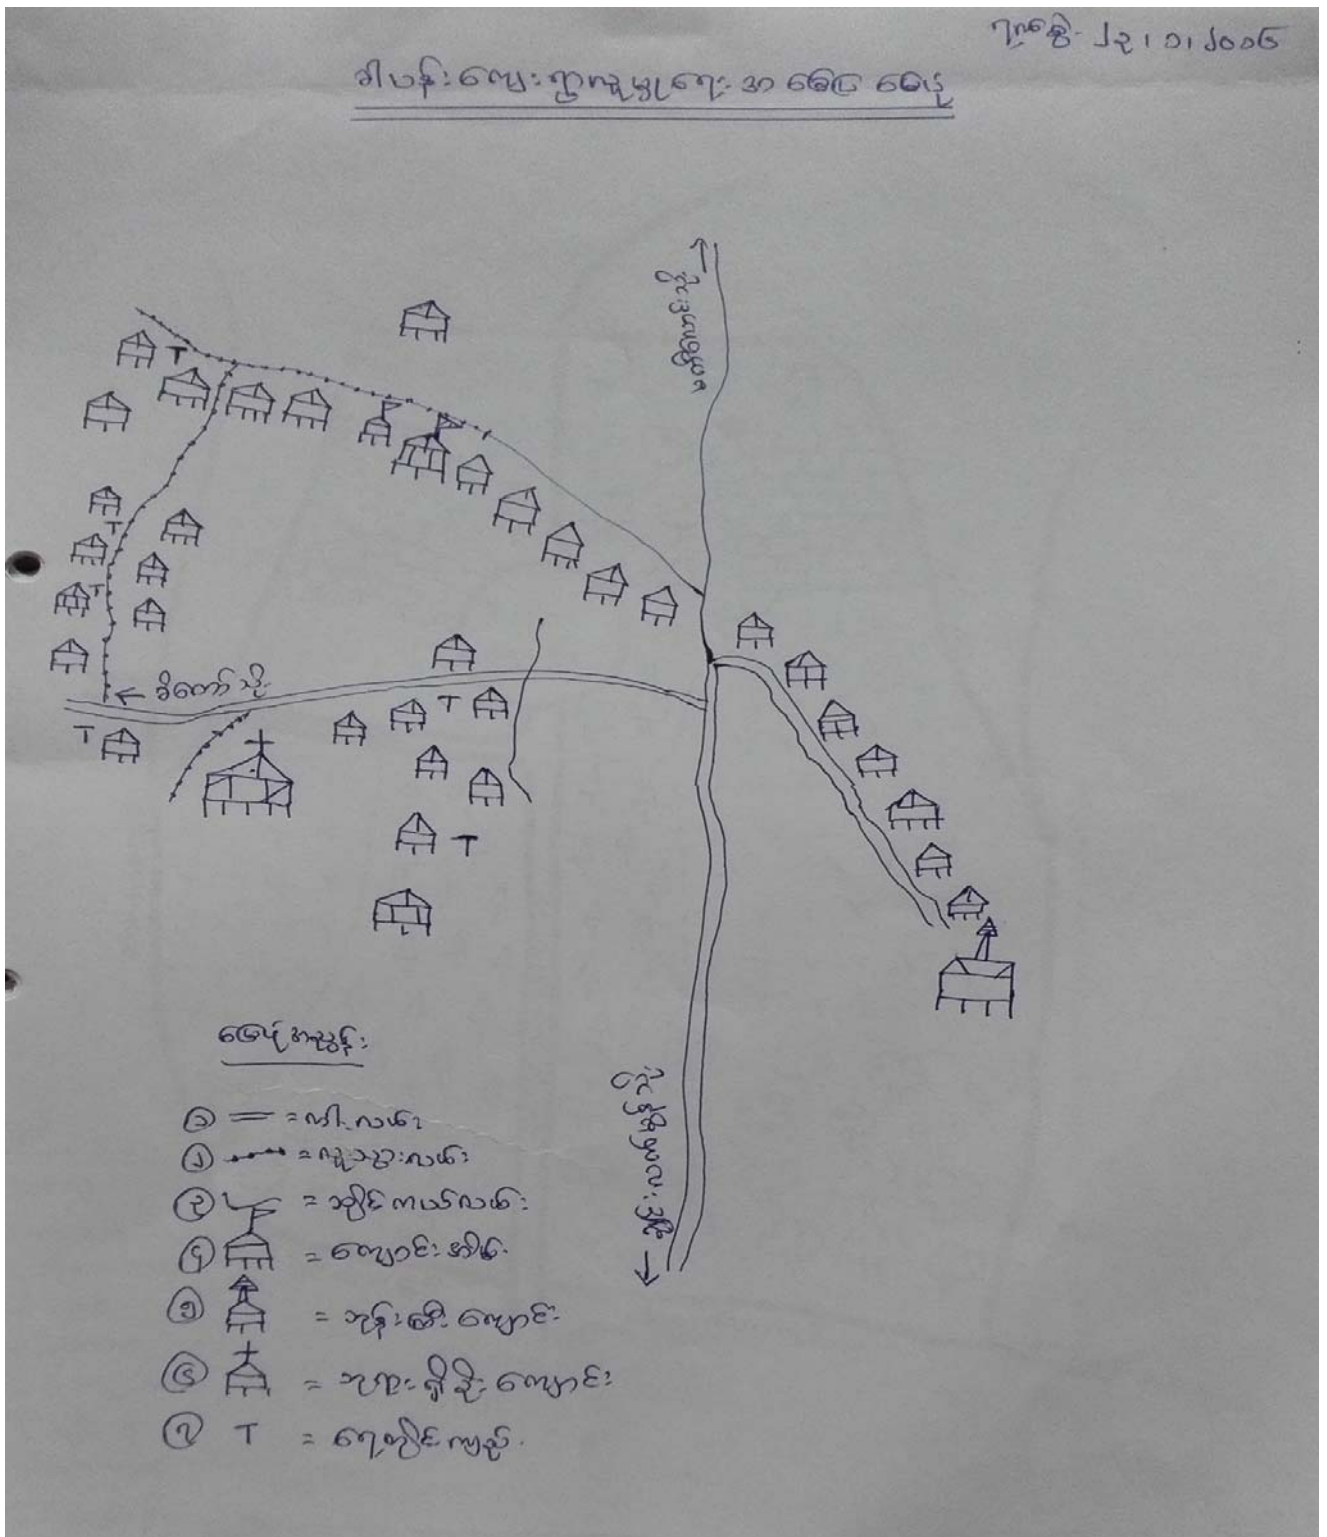 ရက်စွဲ ၂၃၊၁၊၂၀၁၆
ခါပန်းကျေးရွာလူမှုရေးအခြေပြမြေပုံ
ခိတော်သို့
မြေပုံအညွှန်း
၁ = ကားလမ်း
၂ = လူသွားလမ်း
၃ = ဆိုင်ကယ်လမ်း
၄ = ကျောင်းအိမ်
၅ = ဘုန်းကြီးကျောင်း
၆ = ဘုရားရှိခိုးကျောင်း
၇ T = ရေတိုင်ကျည်